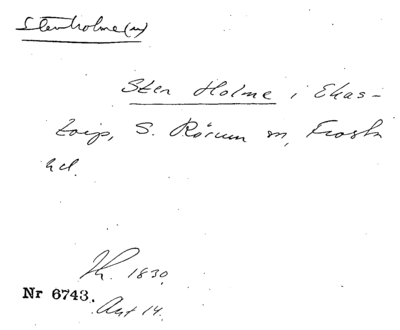 Stenholme(n)
Sten Holme i Ekas-
torp, S. Rörum sn, Frosta
hd.
Th. 1830.
Nr 6743. Avt 14.